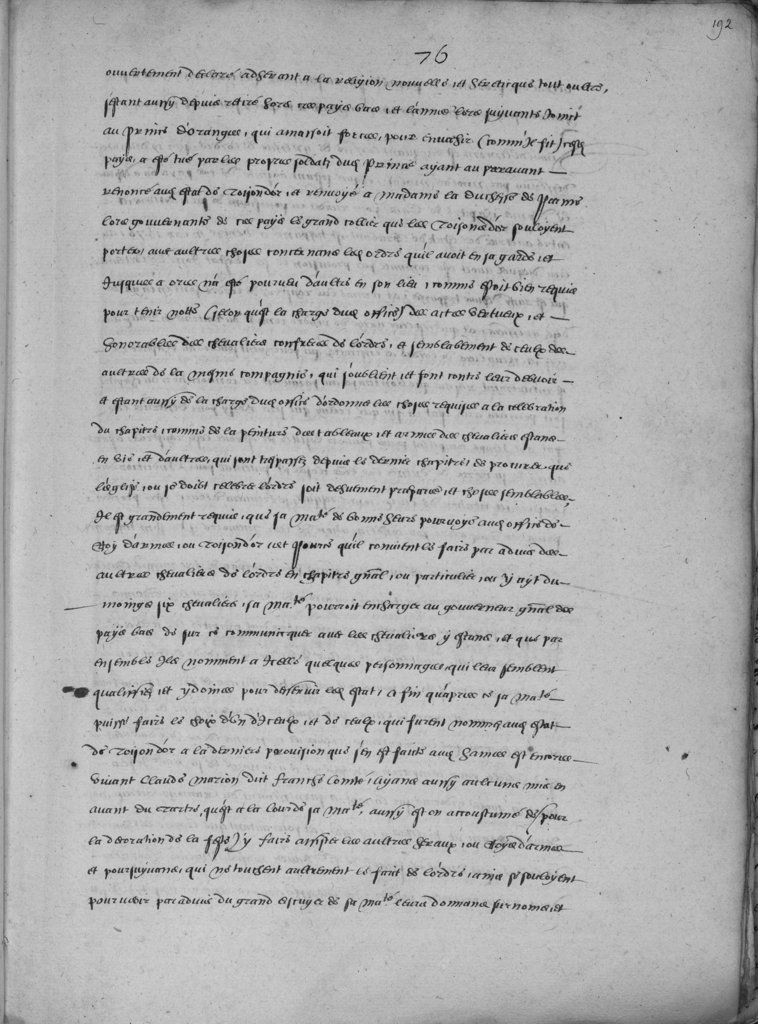 192
76
ouvertement declaré adherant a la religion nouvelle et hereticque tout oultre,
s'estant aussy depuis retiré hors ces pays bas et l'année lors suyvante joinct
au Prince d'Orange, qui amassoit forces, pour envahir (comm'il fit) cesd.
pays, a esté tué par les propres soldatz dud. Prince ayant au paravant
renoncé aud. estat de Toison d'or et renvoyé a madame la Duchesse de Parme
lors gouvernante de ces pays le grand collier que les Toisons d'or souloyent
porter, avec aultres choses concernans led. ordre qu'il avoit en sa garde et
jusques a ores n'a esté pourveu d'aultre en son lieu, comme estoit bien requis
pour tenir notte (selon qu'est la charge dud. office) des actes vertueux et
honorables des chevaliers confreres de l'ordre, et semblablement de ceulx des
aultres de la mesme compagnie, qui s'oublient et font contre leur debvoir
et estant aussy de la charge dud. office d'ordonner les choses requises a la celebration
du chapitre, comme de la peinture des tableaux et armes des chevaliers estans
en vie et d'aultres, qui sont trespassez depuis le dernier chapitre et de procurer que
l'eglise, ou se doibt celebrer l'ordre soit dehuement preparée et choses semblables,
Il est grandement requis, que sa Ma.té de bonne heure pourvoye aud. office de
Roy d'armes, ou Toison d'or, et jaçoit qu'il convient le faire par advis des
aultres chevaliers de l'ordre en chapitre gñal, ou particulier, ou y ayt du
moings six chevaliers, sa Ma.té pourroit encharger au gouverneur gñal des
pays bas de sur ce communicquer avec les chevaliers y estans, et que par
ensemble ilz nomment a icelle quelques personnages, qui leur semblent
qualiffiez et ydoines pour deservir led. estat, a fin qu'apres ce sa Ma.té
puisse faire le choix d'un d'iceulx et de ceulx, qui furent nommez aud. estat
de Toison d'or a la derniere provision que s'en est faicte aud. Hames est encores
vivant Claude Marion dit Franche Comté, ayans aussy aulcuns mis en
avant du Tartre, qu'est a la court de sa Ma.té, aussy est on accoustumé de (pour
la decoration de la feste) y faire assister les aultres heraux, ou Roys d'armes
et poursuyvans, qui ne touchent aultrement le fait de l'ordre, ains se souloyent
pourveoir par advis du grand escuyer de sa Ma.té leur donnans surnoms, et